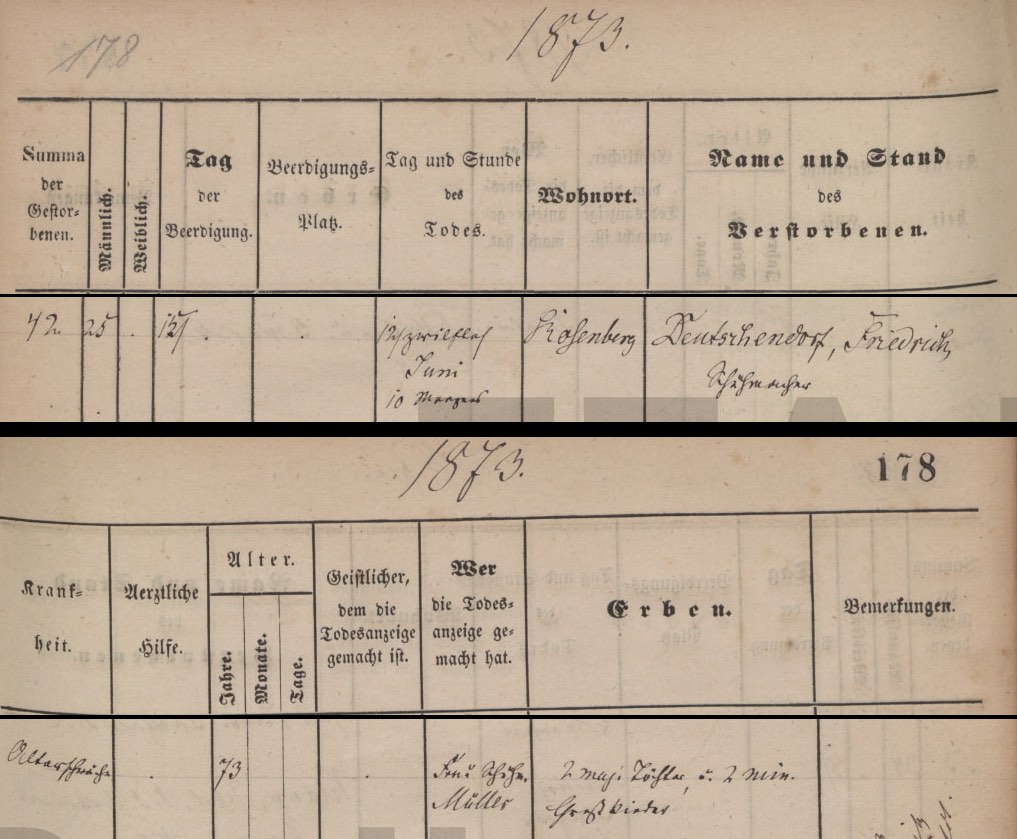 178
1873.
Summa
der
Gestor-
benen.
Männlich.
Weiblich.
Tag
der
Beerdigung.
Beerdigungs-
Platz.
Tag und Stunde
des
Todes.
Wohnort.
Name und Stand
des
Verstorbenen.
42. 25 . 15/ . . 12/zwölften Rosenberg Deutschendorf, Friedrich,
Juni Schuhmacher
10 Morgens
1873. 178
Krank-
heit.
Aerztliche
Hilfe.
Alter.
Jahre.
Monate.
Tage.
Geistlicher,
dem die
Todesanzeige
gemacht ist.
Wer
die Todes-
anzeige ge-
macht hat.
Erben.
Bemerkungen.
Altersschwäche . 73 . Frau Schuhm. 2 maj. Töchter, u. 2 min.
Müller Großkinder